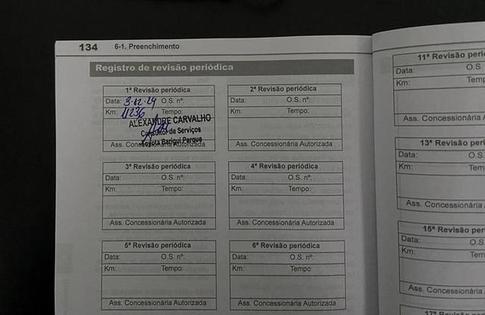 134 6-1. Preenchimento
Registro de revisão periódica
1ª Revisão periódica
Data: 3-12-24 O.S. nº:
Km: 11236 Tempo:
ALEXANDRE CARVALHO
Consultor de Serviços
Toyota Barigui Parque
Ass. Concessionária Autorizada
2ª Revisão periódica
Data: O.S. nº:
Km: Tempo:
Ass. Concessionária Autorizada
3ª Revisão periódica
Data: O.S. nº:
Km: Tempo:
Ass. Concessionária Autorizada
4ª Revisão periódica
Data: O.S. nº:
Km: Tempo:
Ass. Concessionária Autorizada
5ª Revisão periódica
Data: O.S. nº:
Km: Tempo:
Ass. Concessionária Autorizada
6ª Revisão periódica
Data: O.S. nº:
Km: Tempo:
Ass. Concessionária Autorizada
11ª Revisão perió
Data: O.S.
Km: Tem
Ass. Concessionária
13ª Revisão per
Data: O.S
Km: Ter
Ass. Concessionária
15ª Revisão per
Data: O.S
Km: Te
Ass. Concessionári